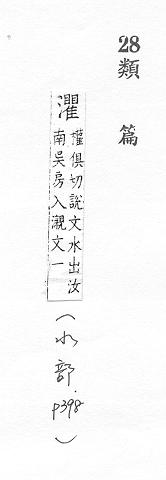 28
類篇
灈
權俱切說文水出汝
南吳房入瀙文一
(水部.p398)